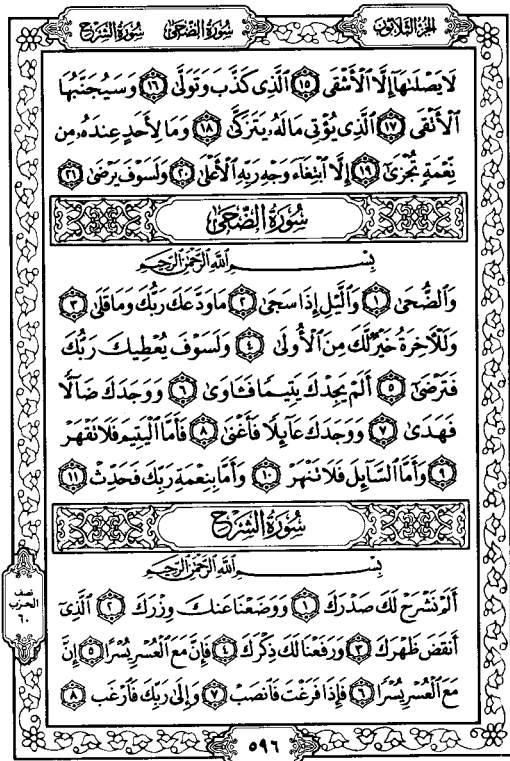 سُورَةُ الضُّحَىٰ سُورَةُ الشَّرْحِ
الجُزْءُ الثَّلَاثُونَ
لَا يَصْلَىٰهَآ إِلَّا ٱلْأَشْقَى ١٥ ٱلَّذِى كَذَّبَ وَتَوَلَّىٰ ١٦ وَسَيُجَنَّبُهَا
ٱلْأَتْقَى ١٧ ٱلَّذِى يُؤْتِى مَالَهُۥ يَتَزَكَّىٰ ١٨ وَمَا لِأَحَدٍ عِندَهُۥ مِن
نِّعْمَةٍ تُجْزَىٰٓ ١٩ إِلَّا ٱبْتِغَآءَ وَجْهِ رَبِّهِ ٱلْأَعْلَىٰ ٢٠ وَلَسَوْفَ يَرْضَىٰ ٢١
سُورَةُ الضُّحَىٰ
بِسْمِ ٱللَّهِ ٱلرَّحْمَٰنِ ٱلرَّحِيمِ
وَٱلضُّحَىٰ ١ وَٱلَّيْلِ إِذَا سَجَىٰ ٢ مَا وَدَّعَكَ رَبُّكَ وَمَا قَلَىٰ ٣
وَلَلْآخِرَةُ خَيْرٌ لَّكَ مِنَ ٱلْأُولَىٰ ٤ وَلَسَوْفَ يُعْطِيكَ رَبُّكَ
فَتَرْضَىٰٓ ٥ أَلَمْ يَجِدْكَ يَتِيمًا فَـَٔاوَىٰ ٦ وَوَجَدَكَ ضَآلًّا
فَهَدَىٰ ٧ وَوَجَدَكَ عَآئِلًا فَأَغْنَىٰ ٨ فَأَمَّا ٱلْيَتِيمَ فَلَا تَقْهَرْ
٩ وَأَمَّا ٱلسَّآئِلَ فَلَا تَنْهَرْ ١٠ وَأَمَّا بِنِعْمَةِ رَبِّكَ فَحَدِّثْ ١١
سُورَةُ الشَّرْحِ
بِسْمِ ٱللَّهِ ٱلرَّحْمَٰنِ ٱلرَّحِيمِ
أَلَمْ نَشْرَحْ لَكَ صَدْرَكَ ١ وَوَضَعْنَا عَنكَ وِزْرَكَ ٢ ٱلَّذِىٓ
أَنقَضَ ظَهْرَكَ ٣ وَرَفَعْنَا لَكَ ذِكْرَكَ ٤ فَإِنَّ مَعَ ٱلْعُسْرِ يُسْرًا ٥ إِنَّ
مَعَ ٱلْعُسْرِ يُسْرًا ٦ فَإِذَا فَرَغْتَ فَٱنصَبْ ٧ وَإِلَىٰ رَبِّكَ فَٱرْغَب ٨
نصف
الحزب
٦٠
٥٩٦